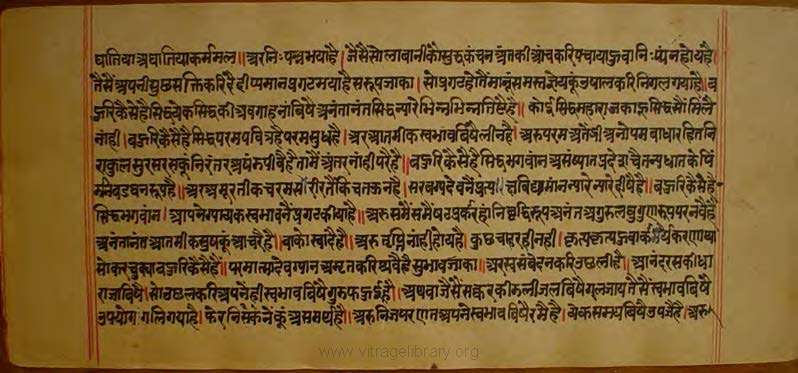 घातिया अघातिया कर्ममल॥ अर निःपन्न भया है। जैसै सोलाबानी को सुद्ध कंचन अंत की आंच करि पचाया हुवा निःपंन होय है।
तैसैं अपनी सक्ति करि दैदीप्यमान प्रगट भया है सरूप जाका। सो प्रगट होतै मानूं समस्त ज्ञेय कूं करि निगल गया है॥ ब
हुरि कैसे है सिद्ध येक सिद्ध की अवगाहना विषै अनंतानंत सिद्ध न्यारे भिन्न भिन्न तिष्टै है॥ कोई सिद्ध महाराज काहू सिद्ध सौं मिलै
नांही। बहुरि कैसे है सिद्ध परम पवित्र है परम सुध है। अर आत्मीक स्वभाव विषै लीन है। अरु परम अतेंद्री अनोपम बाधा रहित नि
राकुल सुरस रस कूं निरंतर पीवै है तामैं अंतर नांही परै है॥ बहुरि कैसे है सिद्ध भगवान असंख्यात प्रदेश चैतन्य धात के पिं
रूप है॥ अर अमूरतीक चरम सरीर तैं किंचित ऊन है। सरबग्य देव नै प्रत्यक्ष विद्यमान न्यारे न्यारे दीषै है॥ बहुरि कैसे है
सिद्ध भगवान। आपने ग्यायक स्वभाव नै प्रगट कीया है। अरु समै समै षट प्रकार हांनि वृद्धि रूप अनंत अगुरुलघु गुण रूप परनवै है
अनंतानंत आत्मीक सुष कूं आचरै है॥ वा को स्वादै है॥ अरु त्रप्ति नांही होय है। कुछ चाह रही नही। कृत्य कृत्य हुवा कार्य करणा था
सो कर चुक्या बहुरि कैसे है॥ परमात्मा देव ग्यान अमृत करि श्रवै है सुभाव जाका। अर स्वसंवेदन करि उछली है॥ आनंद रस की धा
रा जा विषै। सो उछल करि अपने ही स्वभाव विषै हुई है। अथवा जैसैं सक्कर की डली जल विषै गल जाय तैसैं स्वभाव विषै
उपयोग गलि गया है। फेर निकसने कूं असमर्थ है। अरु निज परणत अपने स्वभाव विषै रमै है। येक समय विषै उपजै है। अरु
www.vitragelibrary.org